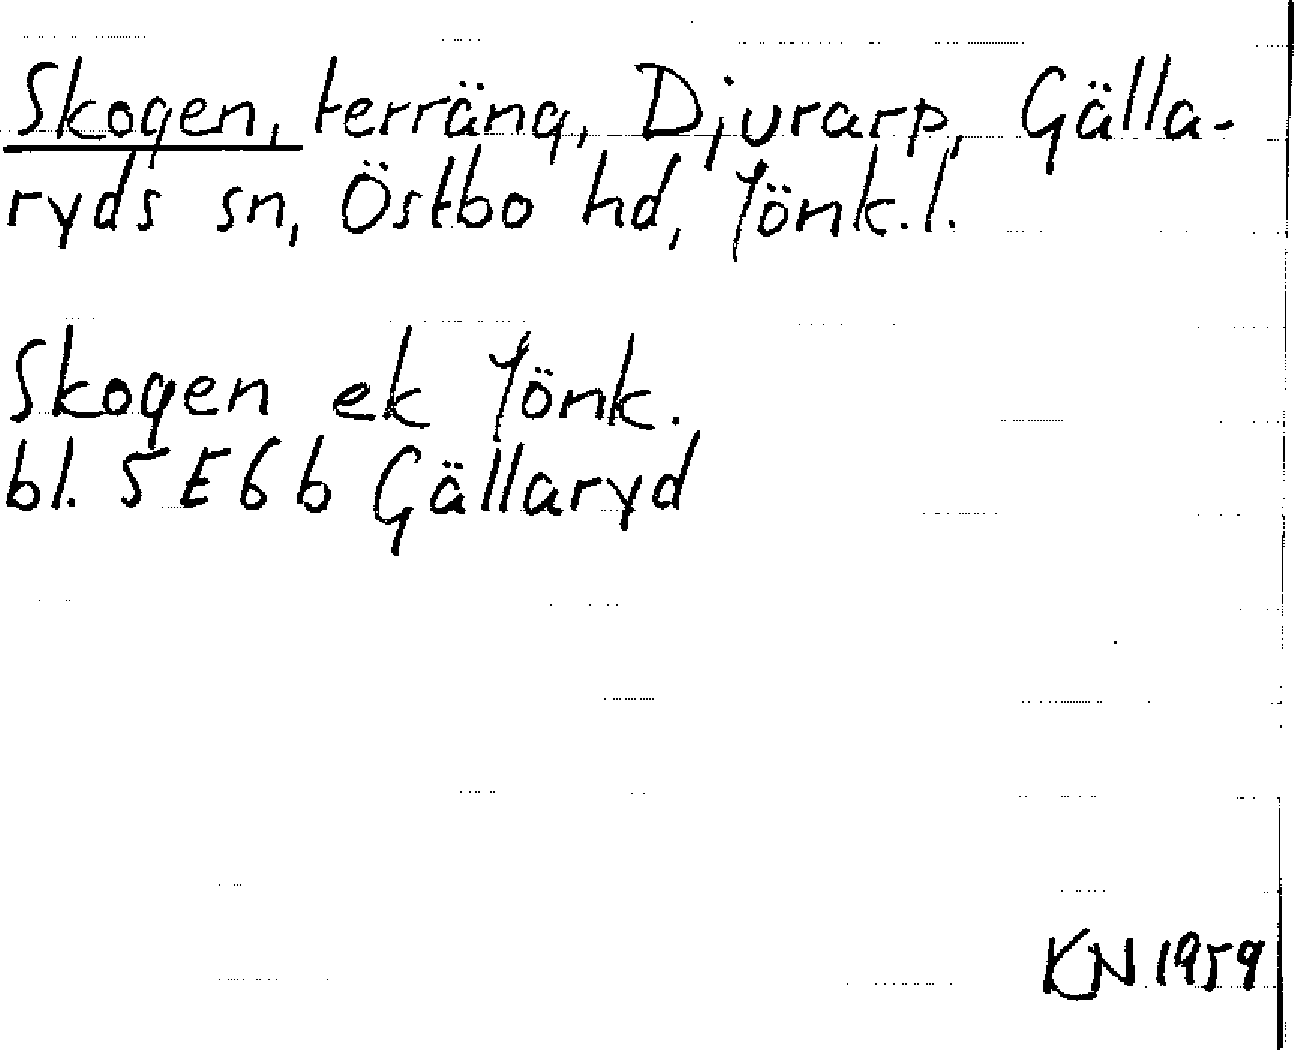 Skogen, terräng, Djurarp, Gälla-
ryds sn, Östbo hd, Jönk.l.
Skogen ek Jönk.
bl. 5E6b Gällaryd
KN 1959